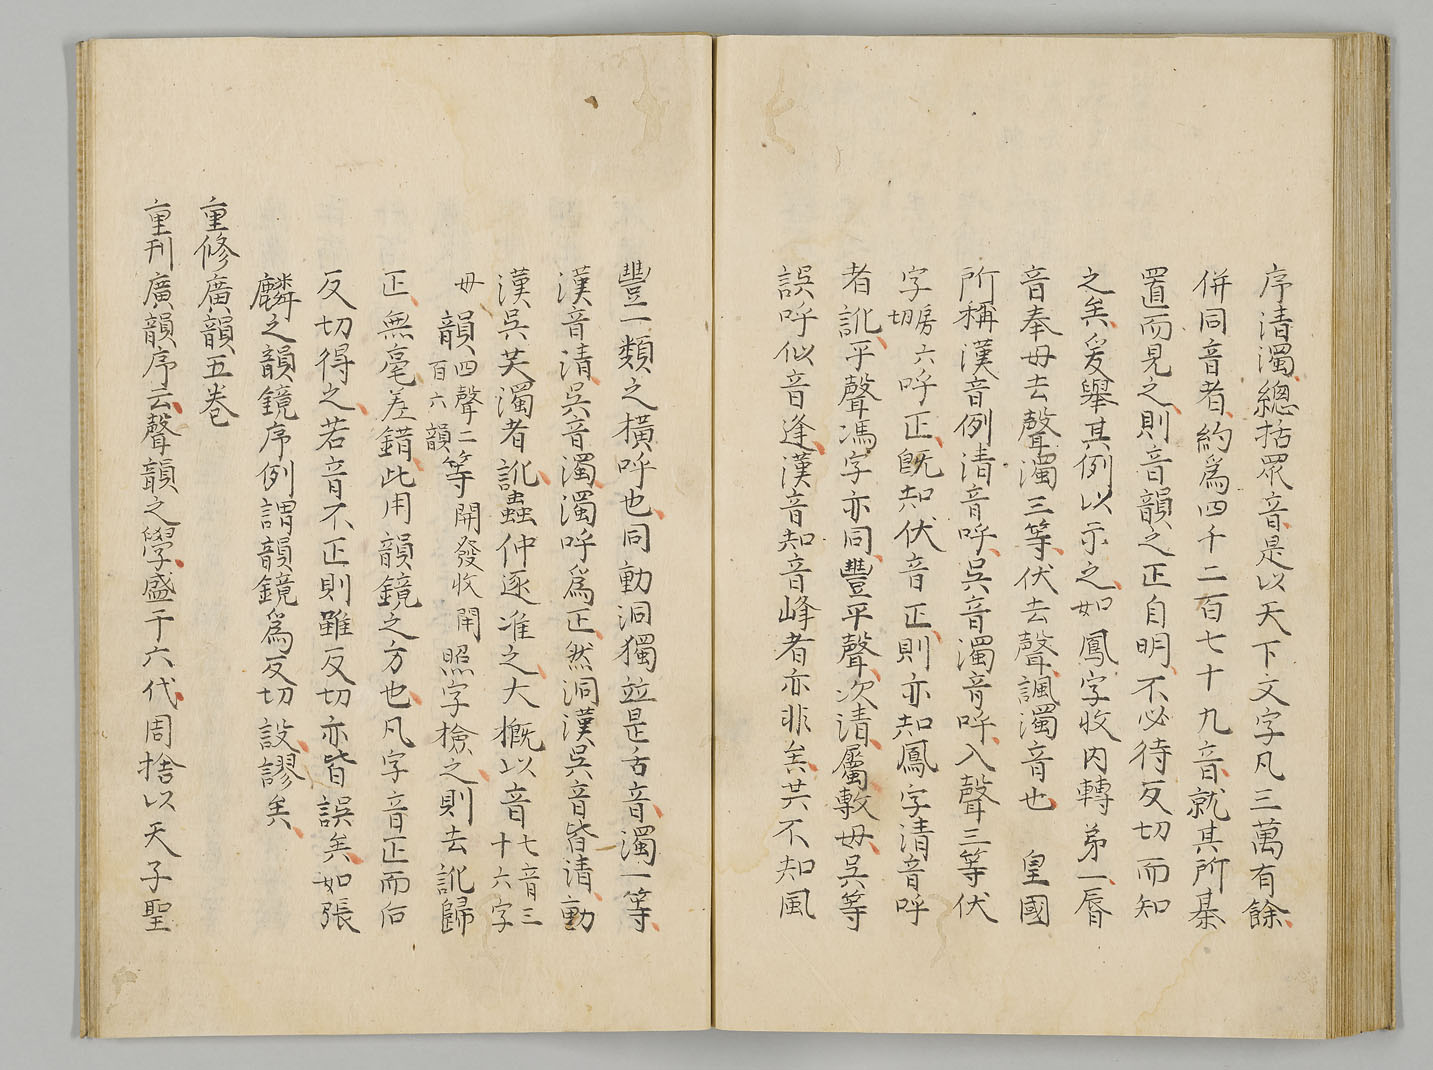 序清濁總括眾音是以天下文字凡三萬有餘
併同音者約爲四千二百七十九音就其所綦
置而見之則音韻之正自明不必待反切而知
之矣爰舉其例以示之如鳳字收内轉弟一唇
音奉母去聲濁三等伏去聲諷濁音也　皇國
所稱漢音例清音呼吳音濁音呼入聲三等伏
字房六切呼正既知伏音正則亦知鳳字清音呼
者訛乎聲馮字亦同豐平聲次清屬敷母吳等
誤呼似音逢漢音知音峰者亦非矣其不知風
豐一類之橫呼也同動洞獨並是舌音濁一等
漢音清吳音濁濁呼爲正然洞漢吳音皆清動
漢吳芺濁者訛蟲仲逐准之大概以音七音三十六字
母韻四聲二百六韻等開發收閉照字檢之則去訛歸
正無毫差錯此用韻鏡之方也凡字音正而后
反切得之若音不正則雖反切亦皆誤矣如張
麟之韻鏡序例謂韻鏡爲反切設謬矣
重修廣韻五卷
重刊廣韻序云聲韻之學盛于六代周捨以天子聖